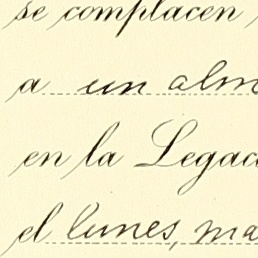 se complacen
a un alm
en la Legac
el lunes, ma